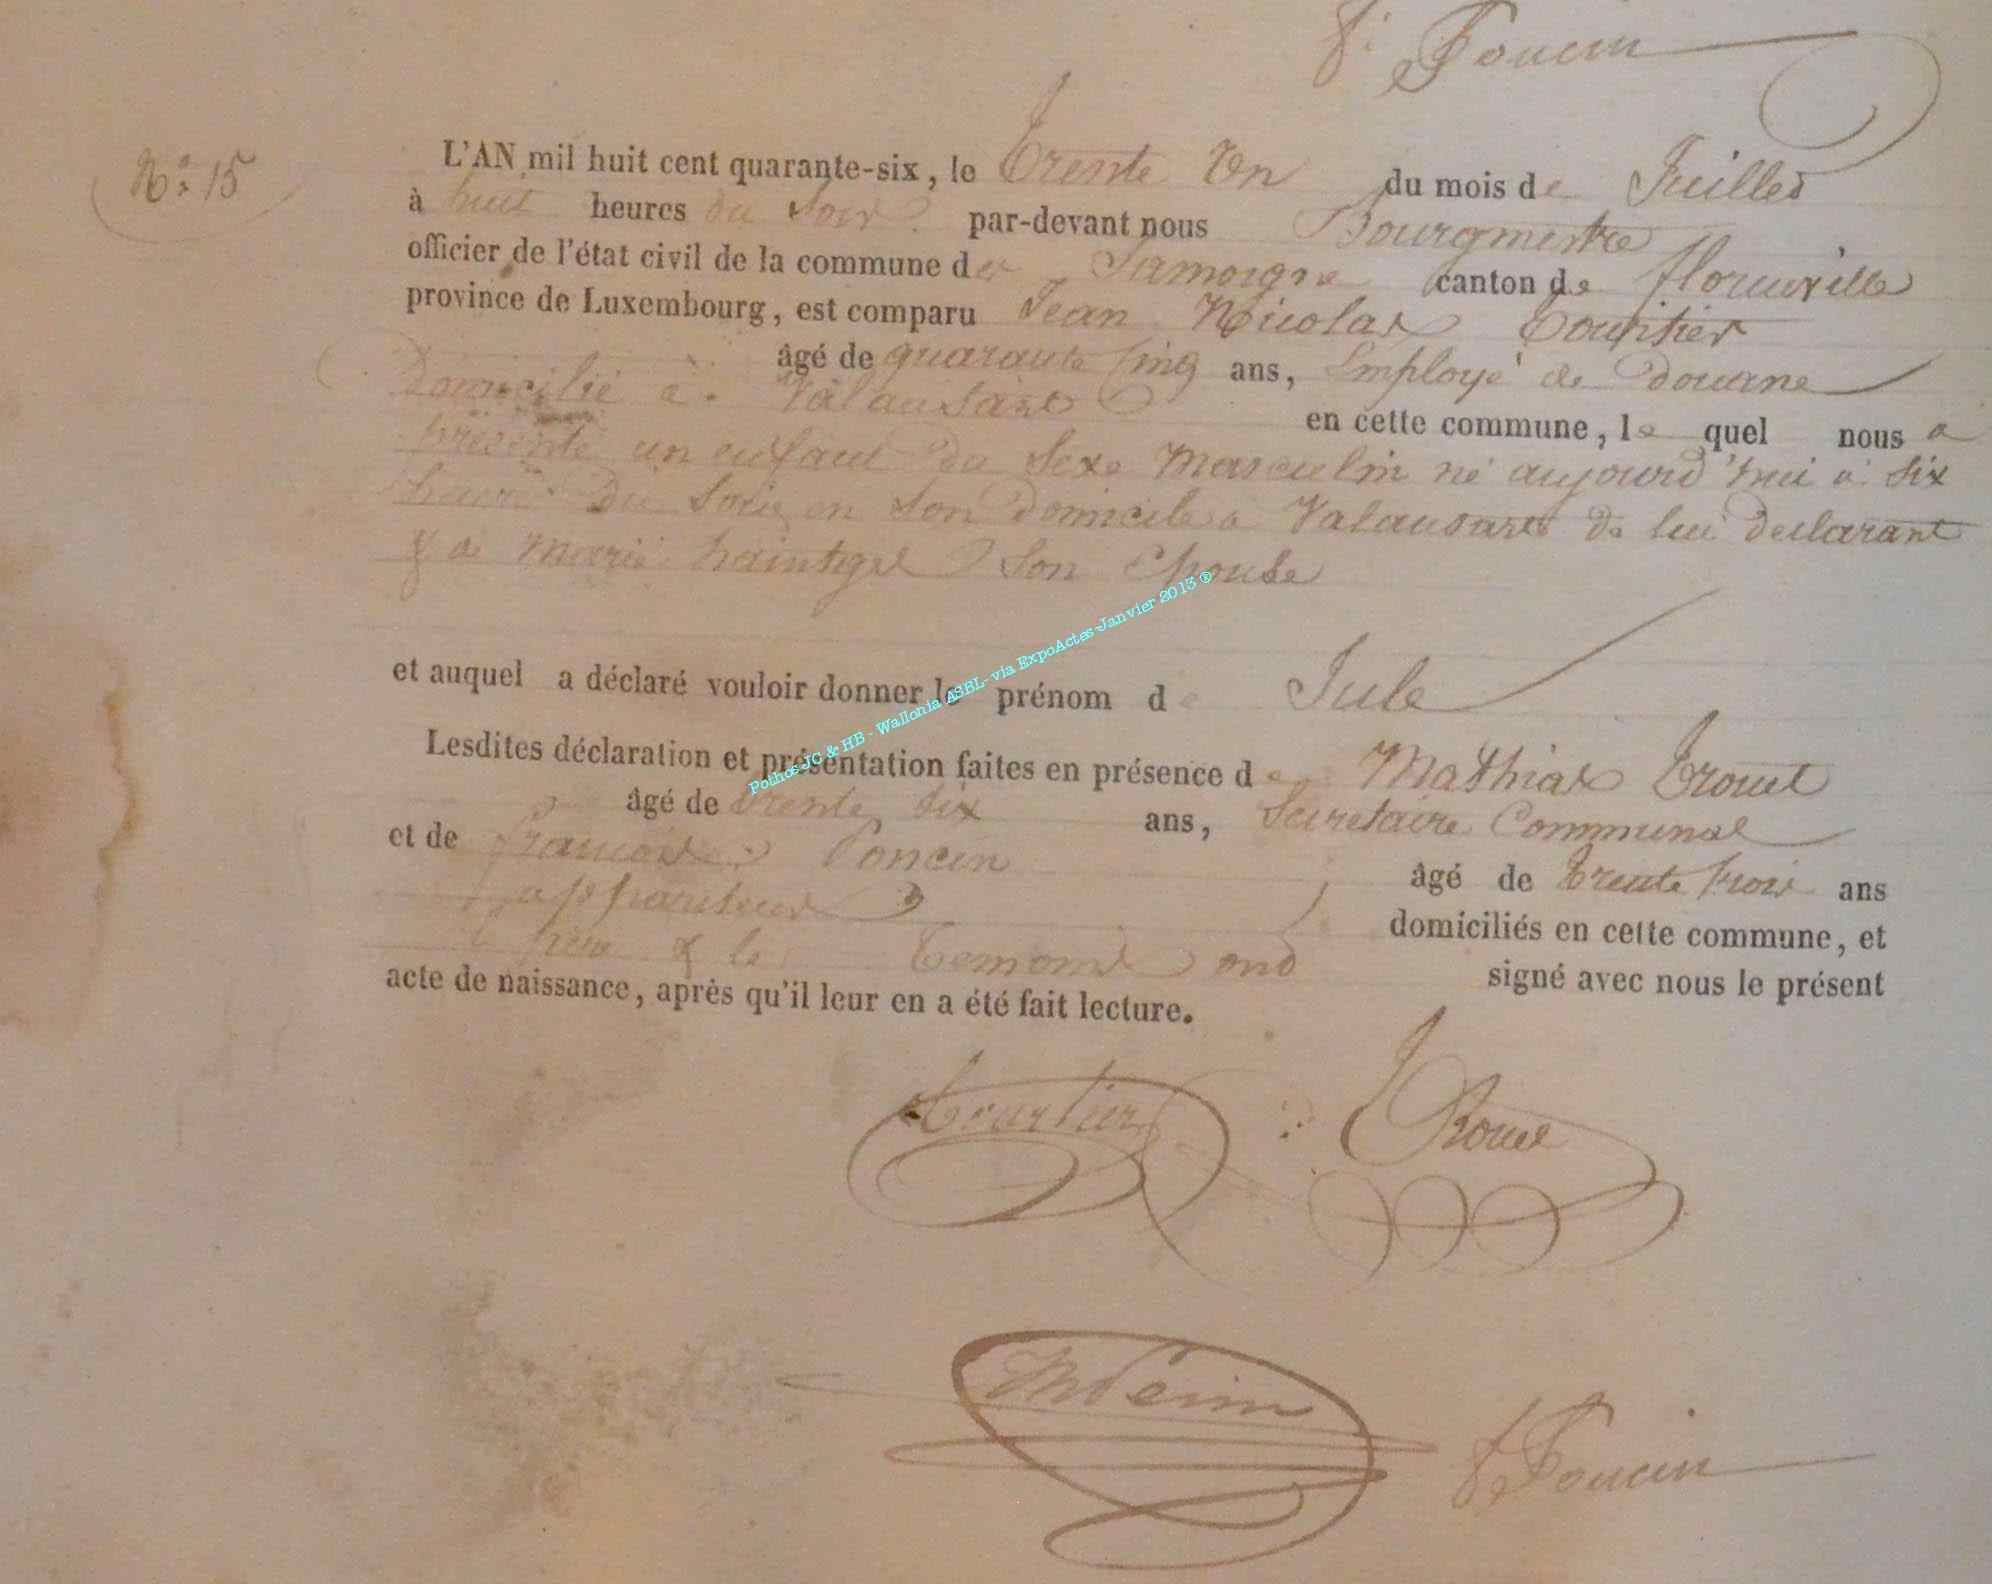 f. Poncin
N° 15
L'AN mil huit cent quarante-six, le Trente Un du mois de Juillet
à huit heures du Soir par-devant nous Bourgmestre
officier de l'état civil de la commune de Jamoigne canton de florenville
province de Luxembourg, est comparu Jean Nicolas Tourtier
âgé de quarante cinq ans, Employé de douane
domicilié à Valansart en cette commune, le quel nous a
présenté un enfant du Sexe Masculin né aujourd'hui à Six
heure du Soir en Son domicile à Valansart de lui déclarant
& de Marie Son Epouse
et auquel a déclaré vouloir donner le prénom de Jule
Lesdites déclaration et présentation faites en présence de Mathias Trouet
âgé de trente Six ans, Secretaire Communal
et de francois Poncin âgé de trente trois ans
appariteur domiciliés en cette commune, et
le père & les Temoins ont signé avec nous le présent
acte de naissance, après qu'il leur en a été fait lecture.
Tourtier TRouet
f Poncin
Pothos JC & HB - Wallonia ASBL- via ExpoActes-Janvier 2013 ®